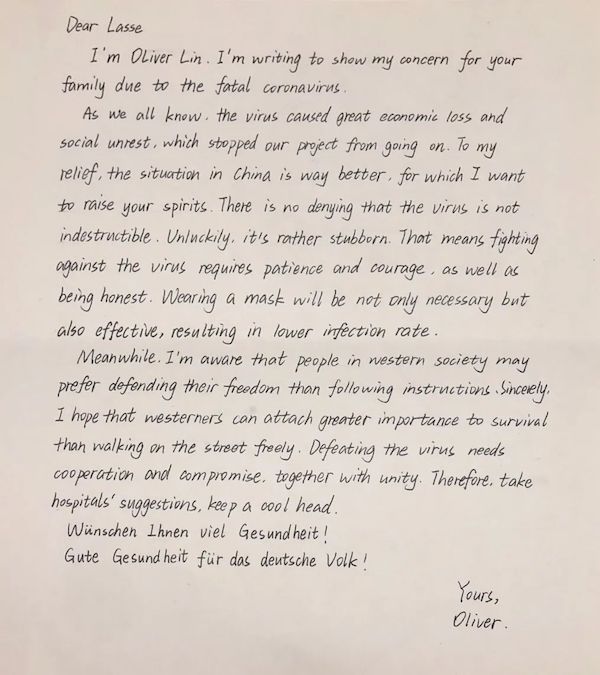 Dear Lasse
I'm Oliver Lin. I'm writing to show my concern for your
family due to the fatal coronavirus.
As we all know, the virus caused great economic loss and
social unrest, which stopped our project from going on. To my
relief, the situation in China is way better, for which I want
to raise your spirits. There is no denying that the virus is not
indestructible. Unluckily, it's rather stubborn. That means fighting
against the virus requires patience and courage, as well as
being honest. Wearing a mask will be not only necessary but
also effective, resulting in lower infection rate.
Meanwhile, I'm aware that people in western society may
prefer defending their freedom than following instructions. Sincerely,
I hope that westerners can attach greater importance to survival
than walking on the street freely. Defeating the virus needs
cooperation and compromise, together with unity. Therefore, take
hospitals' suggestions, keep a cool head.
Wünschen Ihnen viel Gesundheit!
Gute Gesundheit für das deutsche Volk!
Yours,
Oliver.